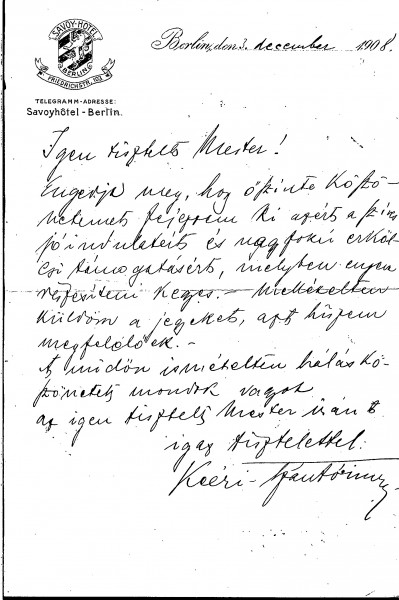 SAVOY-HOTEL
BERLIN
FRIEDRICHSTR. 103
TELEGRAMM-ADRESSE:
Savoyhôtel - Berlin.
Berlin, den 3. december 1908.
Igen tisztelt Mester!
Engedje meg, hogy őszinte köszö-
netemet fejezzem ki azért a szives
jóindulatért és nagyfokú erköl-
csi támogatásért, melyben engem
részesíteni kegyes. — Mellékelten
küldöm a jegyeket, azt hiszem
megfelelőek. —
A midőn ismételten hálás kö-
szönetet mondok vagyok
az igen tisztelt Mester iránt
igaz tisztelettel:
Kéri-Szántó